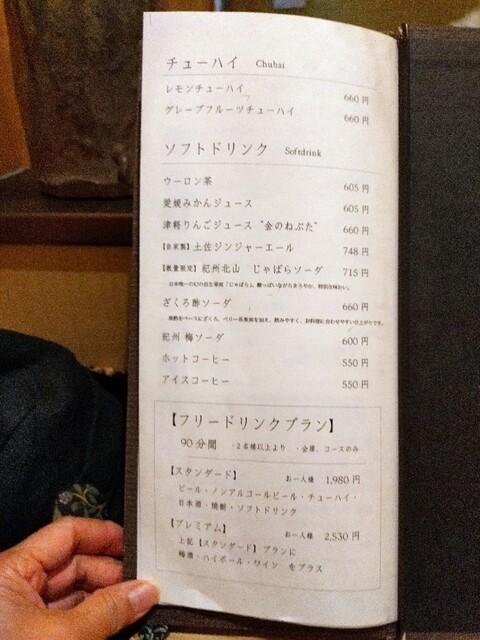 チューハイ Chuhai
レモンチューハイ 660円
グレープフルーツチューハイ 660円
ソフトドリンク Softdrink
ウーロン茶 605円
愛媛みかんジュース 605円
津軽りんごジュース “金のねぶた” 660円
【自家製】土佐ジンジャーエール 748円
【数量限定】紀州北山 じゃばらソーダ 715円
日本唯一の幻の自生果樹「じゃばら」。酸っぱいながらまろやか、特別な味わい。
ざくろ酢ソーダ 660円
黒酢をベースにざくろ、ベリー系果実を加え、飲みやすく、お料理に合わせやすい仕上がりです。
紀州 梅ソーダ 600円
ホットコーヒー 550円
アイスコーヒー 550円
【フリードリンクプラン】
90分間 ・2名様以上より ・会席、コースのみ
【スタンダード】 お一人様 1,980円
ビール・ノンアルコールビール・チューハイ・
日本酒・焼酎・ソフトドリンク
【プレミアム】 お一人様 2,530円
上記【スタンダード】プランに
梅酒・ハイボール・ワイン をプラス